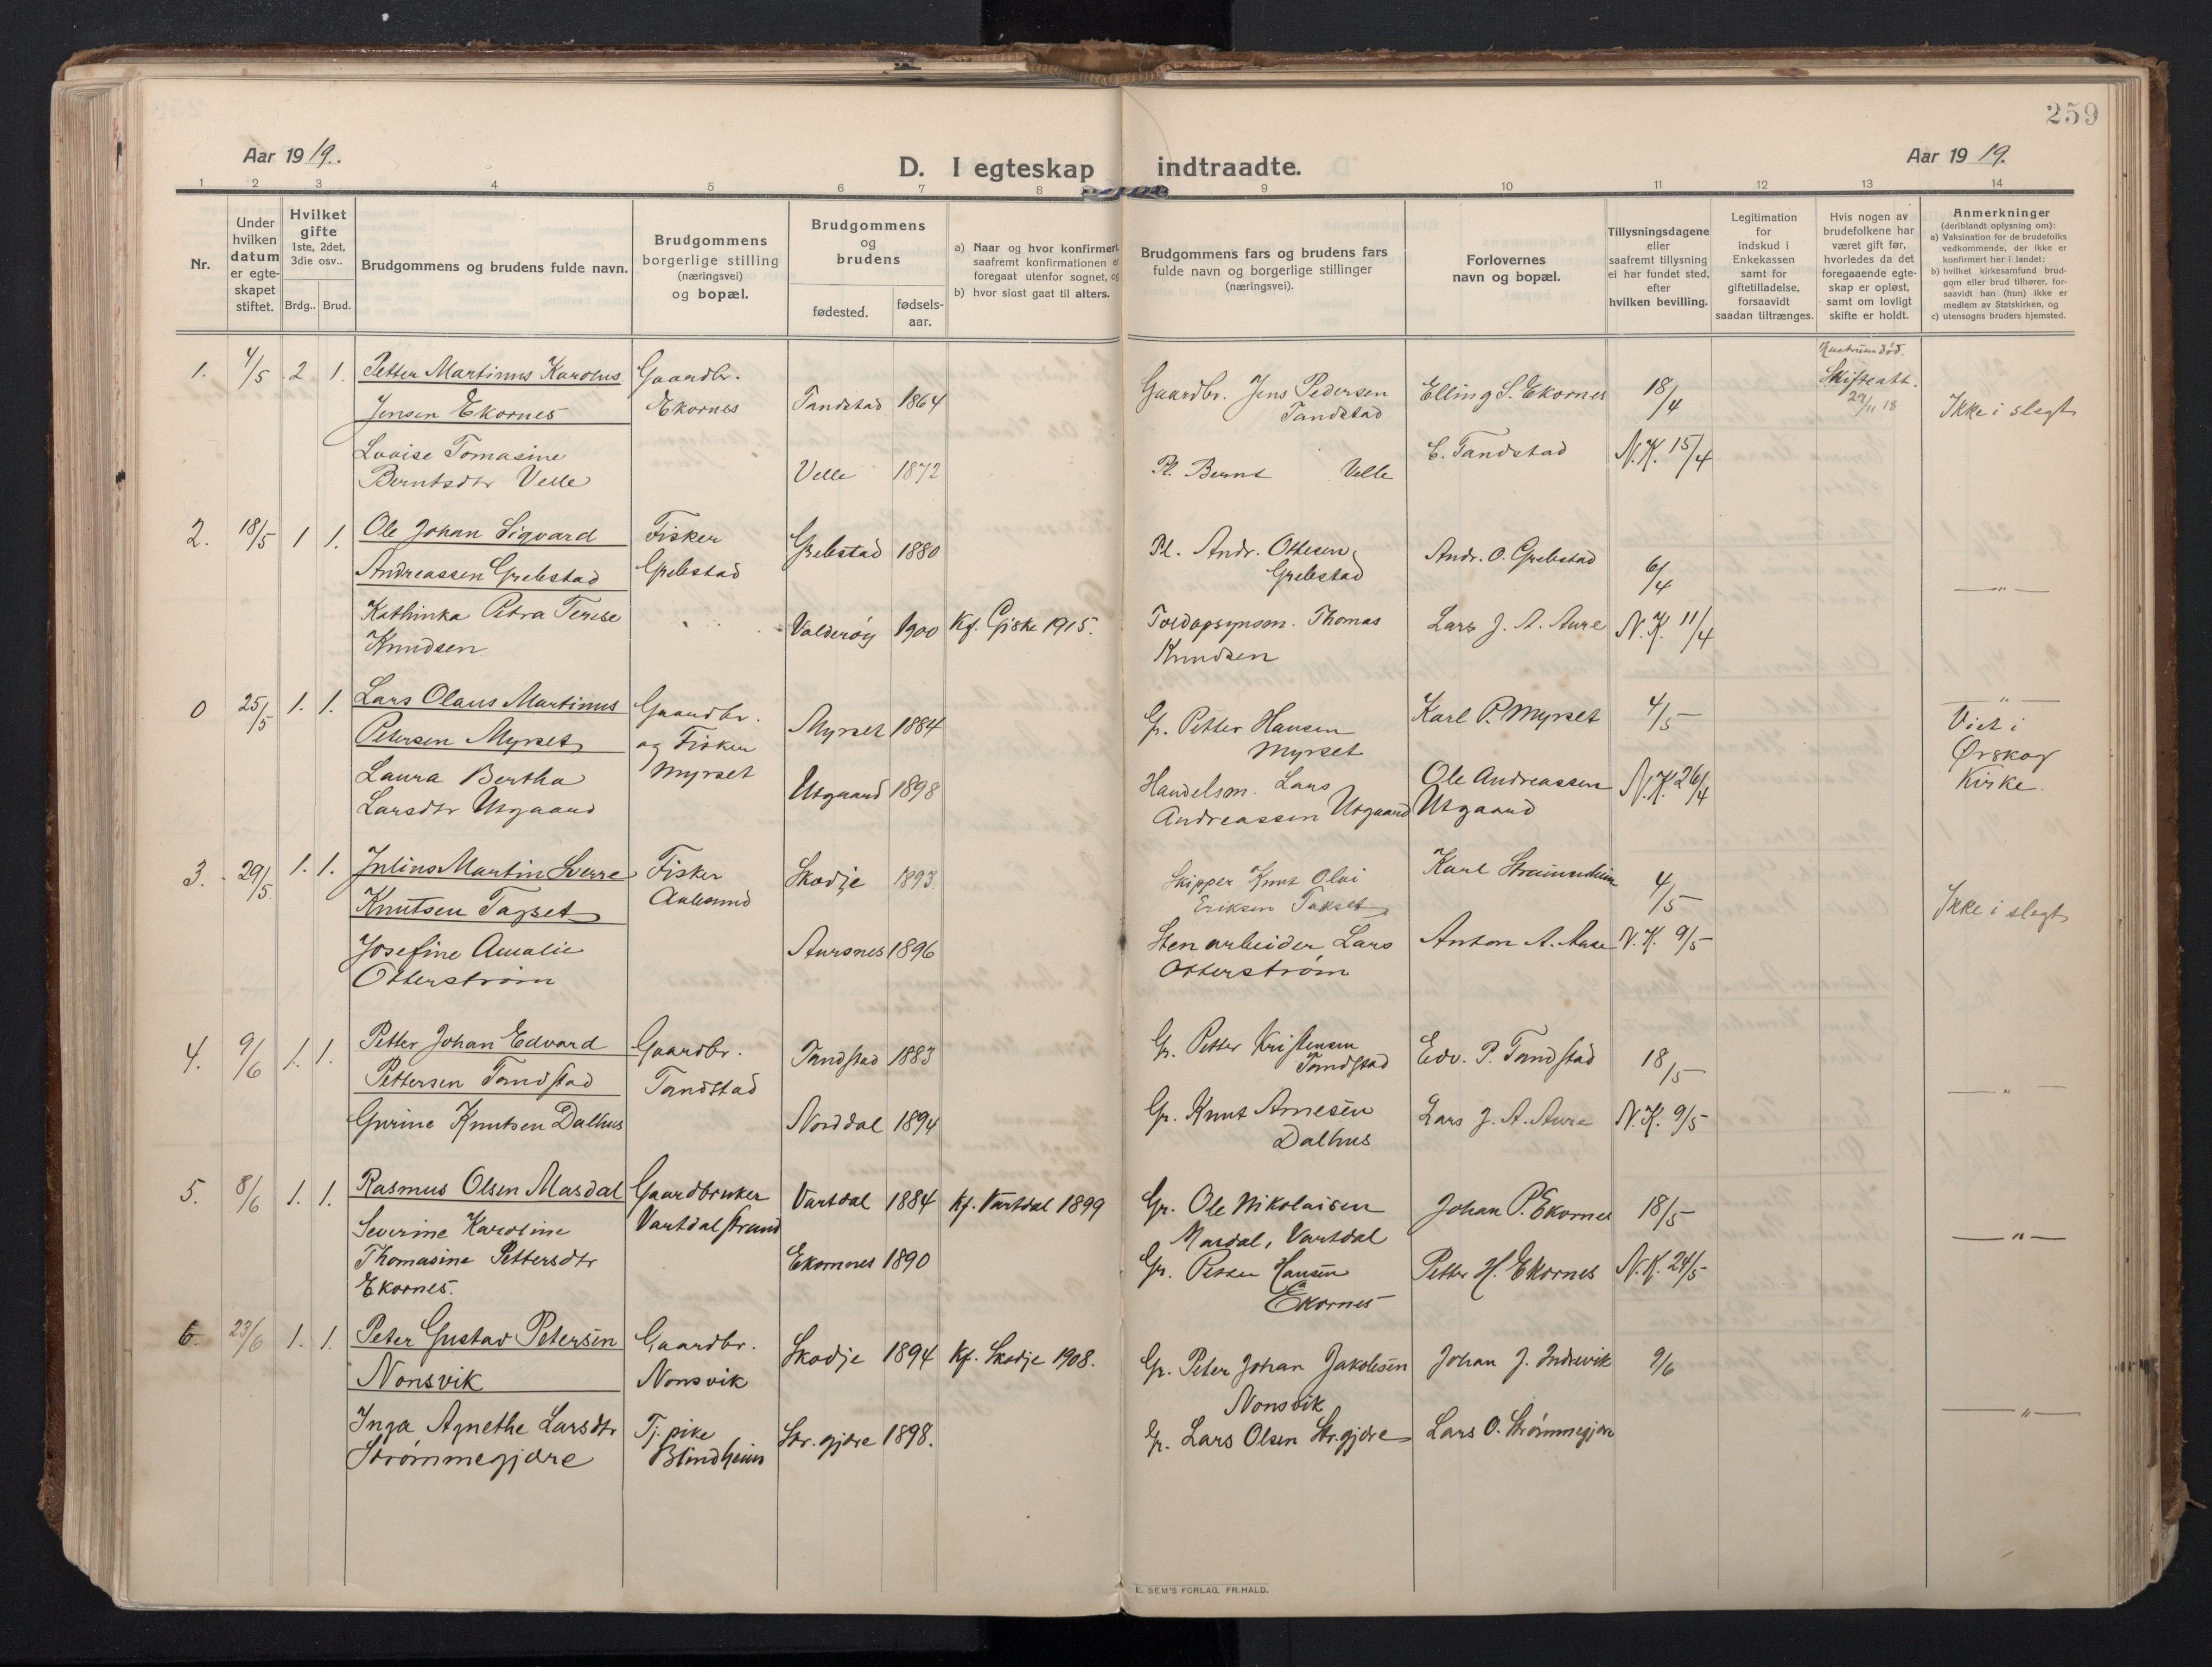 259
Aar 1919.
D. I egteskap indtraadte.
Aar 1919.
1 2 3 4 5 6 7 8 9 10 11 12 13 14
Nr.
Under hvilken datum er egte-skapet stiftet.
Hvilket gifte
1ste, 2det, 3die osv..
Brdg.. Brud.
Brudgommens og brudens fulde navn.
Brudgommens borgerlige stilling (næringsvei) og bopæl.
Brudgommens og brudens
fødested.
fødsels-aar.
a) Naar og hvor konfirmert
saafremt konfirmationen er
foregaat utenfor sognet, og
b) hvor sidst gaat til alters.
Brudgommens fars og brudens fars
fulde navn og borgerlige stillinger
(næringsvei).
Forlovernes
navn og bopæl.
Tillysningsdagene
eller
saafremt tillysning
ei har fundet sted,
efter
hvilken bevilling.
Legitimation
for
indskud i
Enkekassen
samt for
giftetilladelse,
forsaavidt
saadan tiltrænges.
Hvis nogen av
brudefolkene har
været gift før,
hvorledes da det
foregaaende egte-
skap er opløst,
samt om lovligt
skifte er holdt.
Anmerkninger
(deriblandt oplysning om):
a) Vaksination for de brudefolks
vedkommende, der ikke er
konfirmert her i landet;
b) hvilket kirkesamfund brud-
gom eller brud tilhører, for-
saavidt han (hun) ikke er
medlem av Statskirken, og
c) utensogns bruders hjemsted.
1. 4/5 2 1. Petter Martinus Karolus Gaardbr.
Jensen Ekornes Ekornes Tandstad 1864
Gaardbr. Jens Pedersen Elling S. Ekornes 18/4
Tandstad
Skifteatt.
29/11 18 Ikke i slegt
Lovise Tomasine
Berntsdtr Velle Velle 1872
Pl. Bernt Velle E. Tandstad N.K. 15/4
2. 18/5 1 1. Ole Johan Sigvard Fisker
Andreassen Grebstad Grebstad Grebstad 1880
Pl. Andr. Ottesen Andr. O. Grebstad 6/4
Grebstad
— " —
Kathinka Petra Terese
Knudsen Valderøy 1900 Kf. Giske 1915.
Toldopsynsm. Thomas Lars J. A. Aure N.K. 11/4
Knudsen
0 25/5 1. 1. Lars Olaus Martinus Gaardbr.
Petersen Myrset og Fisker Myrset Myrset 1884
G. Petter Hansen Karl P. Myrset 4/5
Myrset
— " —
Viet i
Ørskog
Kirke.
Laura Bertha
Larsdtr Utgaard Utgaard 1898
Handelsm. Lars Ole Andreassen N.K. 26/4
Andreassen Utgaard Utgaard
3. 29/5. 1. 1. Julius Martin Sverre Fisker
Knutsen Tafset Aalesund Skodje 1893.
Skipper Knut Olai Karl 4/5
Eriksen Takset
Ikke i slegt
Josefine Amalie
Otterstrøm Aursnes 1896
Stenarbeider Lars Anton A. Aase N.K. 9/5
Otterstrøm
4. 9/6 1. 1. Petter Johan Edvard Gaardbr.
Pettersen Tandstad Tandstad Tandstad 1883
G. Petter Kristensen Edv. P. Tandstad 18/5
Tandstad
— " —
Gurine Knutsen Dalhus Norddal 1894
Gr. Knut Arnesen Lars J. A. Aure N.K. 9/5
Dalhus
5. 8/6 1. 1. Rasmus Olsen Masdal Gaardbruker
Vartdalstrand Vartdal 1884 Kf. Vartdal 1899
Gr. Ole Nikolaisen Johan P. Ekornes 18/5
Masdal, Vartdal
— " —
Severine Karoline
Thomasine Pettersdtr
Ekornes. Ekornes 1890
Gr. Petter Hansen Petter H. Ekornes N.K. 24/5
Ekornes
6. 23/6 1. 1. Peter Gustav Petersen Gaardbr.
Nonsvik Nonsvik Skodje 1894 Kf. Skodje 1908.
Gr. Peter Johan Jakobsen Johan J. Indrevik 9/6
Nonsvik
— " —
Inga Agnethe Larsdtr Tj. pike
Strømmegjære Blindheim Str.gjære 1898.
Gr. Lars Olsen Str.gjære Lars O. Strømmegjære
E. SEM'S FORLAG, FR.HALD.